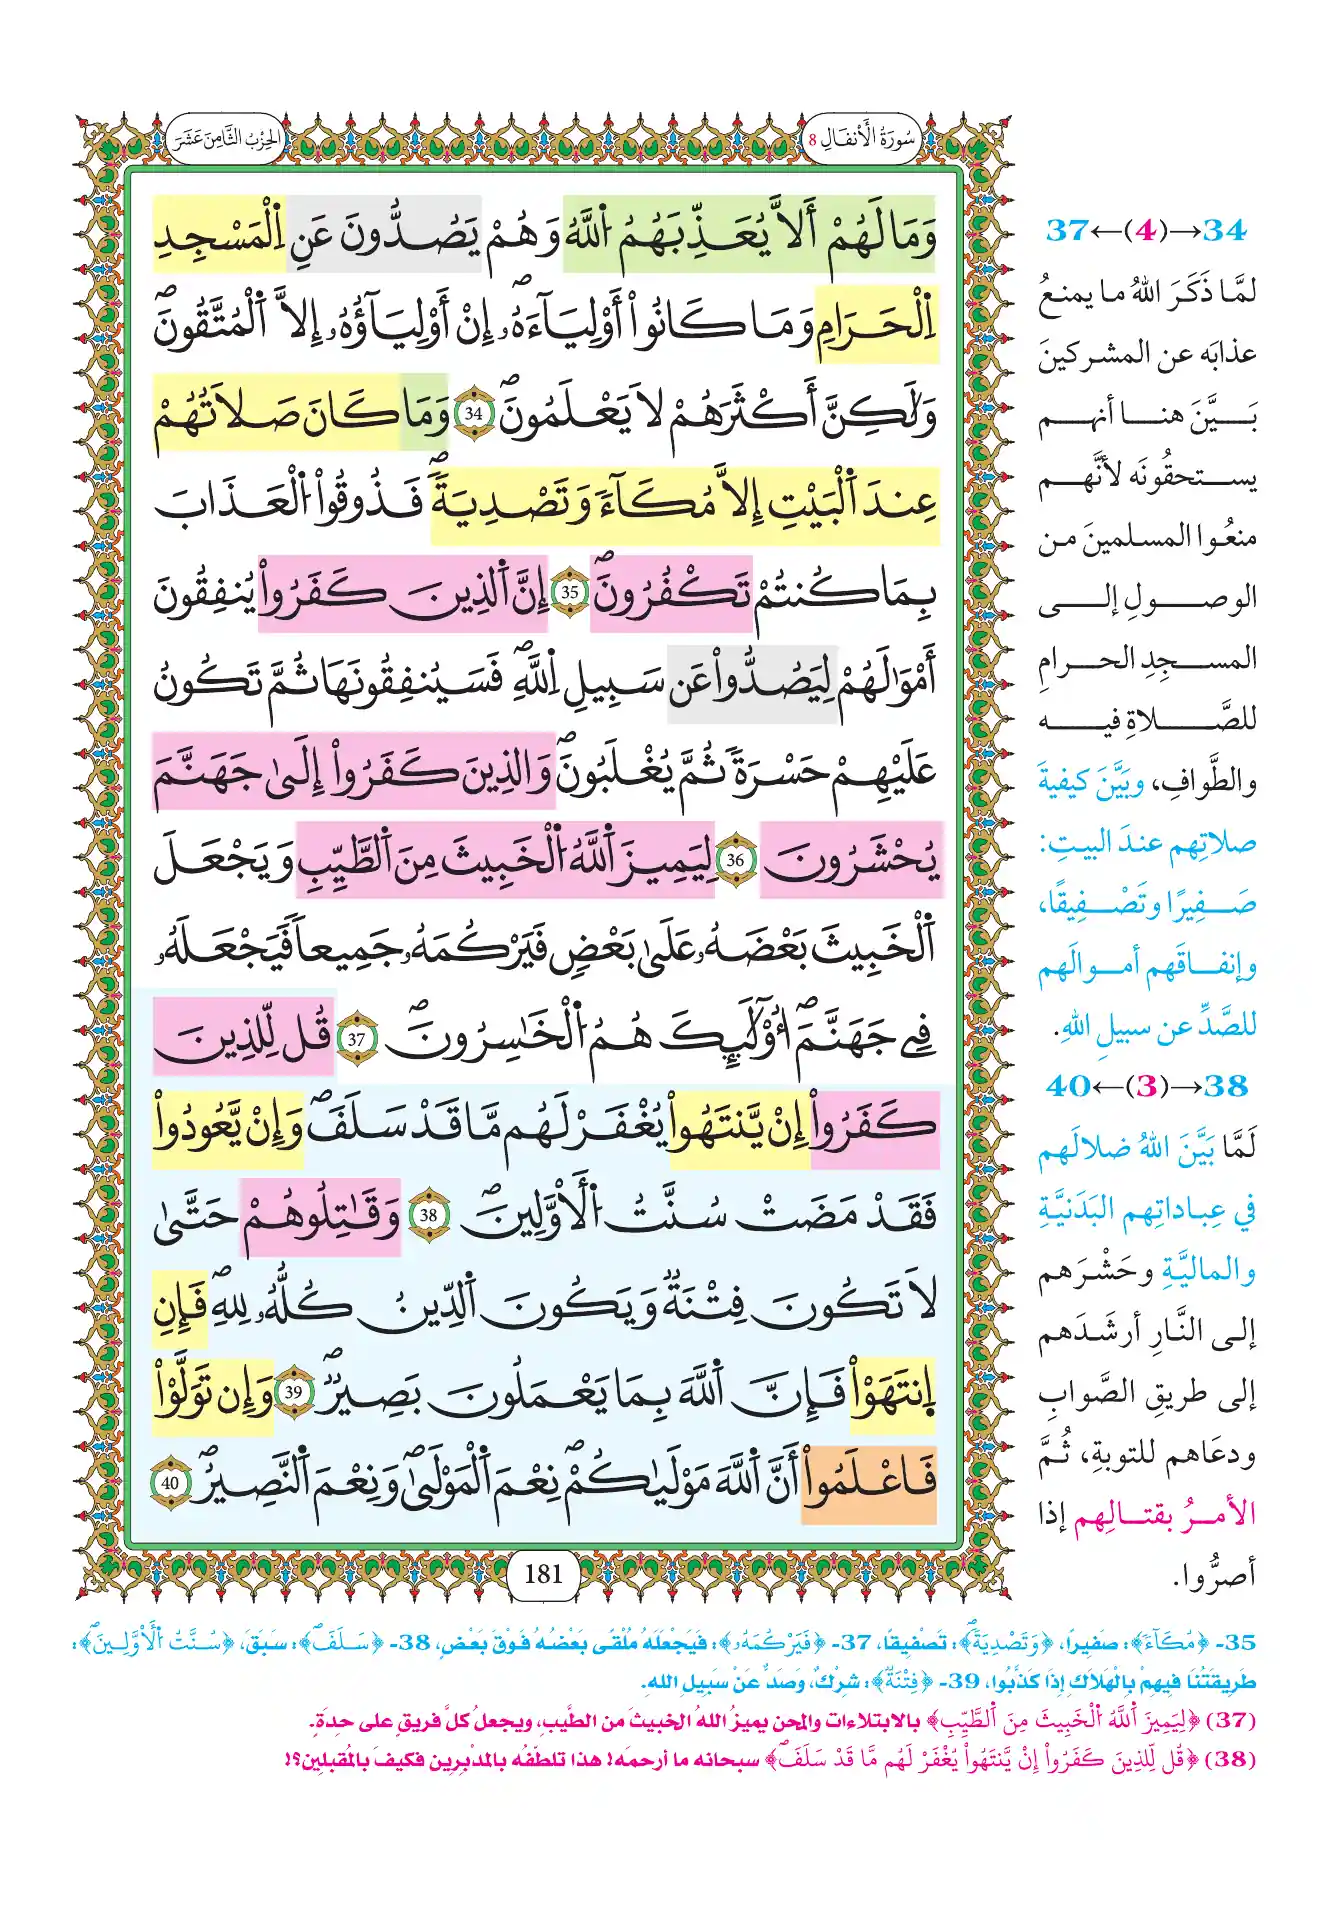 سُورَةُ الْأَنفَالِ 8
الحِزْبُ الثَّامِنَ عَشَرَ
وَمَا لَهُمْ أَلَّا يُعَذِّبَهُمُ اُللَّهُ وَهُمْ يَصُدُّونَ عَنِ اِلْمَسْجِدِ
اِلْحَرَامِ وَمَا كَانُواْ أَوْلِيَآءَهُۥٓ إِنْ أَوْلِيَآؤُهُۥٓ إِلَّا اَلْمُتَّقُونَ
وَلَٰكِنَّ أَكْثَرَهُمْ لَا يَعْلَمُونَ 34 وَمَا كَانَ صَلَاتُهُمْ
عِندَ اَلْبَيْتِ إِلَّا مُكَآءً وَتَصْدِيَةً فَذُوقُواْ اُلْعَذَابَ
بِمَا كُنتُمْ تَكْفُرُونَ 35 إِنَّ اَلذِينَ كَفَرُواْ يُنفِقُونَ
أَمْوَٰلَهُمْ لِيَصُدُّواْ عَن سَبِيلِ اِللَّهِ فَسَيُنفِقُونَهَا ثُمَّ تَكُونُ
عَلَيْهِمْ حَسْرَةً ثُمَّ يُغْلَبُونَ وَالذِينَ كَفَرُواْ إِلَىٰ جَهَنَّمَ
يُحْشَرُونَ 36 لِيَمِيزَ اَللَّهُ اُلْخَبِيثَ مِنَ اَلطَّيِّبِ وَيَجْعَلَ
اَلْخَبِيثَ بَعْضَهُۥ عَلَىٰ بَعْضٍ فَيَرْكُمَهُۥ جَمِيعاً فَيَجْعَلَهُۥ
فِي جَهَنَّمَ أُوْلَٰٓئِكَ هُمُ اُلْخَٰسِرُونَ 37 قُل لِّلذِينَ
كَفَرُواْ إِنْ يَّنتَهُواْ يُغْفَرْ لَهُم مَّا قَدْ سَلَفَ وَإِنْ يَّعُودُواْ
فَقَدْ مَضَتْ سُنَّتُ اُلْأَوَّلِينَ 38 وَقَٰتِلُوهُمْ حَتَّىٰ
لَا تَكُونَ فِتْنَةٌ وَيَكُونَ اَلدِّينُ كُلُّهُۥ لِلهِ فَإِنِ
اِنتَهَوْاْ فَإِنَّ اَللَّهَ بِمَا يَعْمَلُونَ بَصِيرٌ 39 وَإِن تَوَلَّوْاْ
فَاعْلَمُواْ أَنَّ اَللَّهَ مَوْلَيٰكُمْ نِعْمَ اَلْمَوْلَىٰ وَنِعْمَ اَلنَّصِيرُ 40
181
34→(4)←37
لمَّا ذَكَرَ اللهُ ما يمنعُ
عذابَه عن المشركينَ
بَيَّنَ هنا أنهم
يستحقُونَه لأنَّهم
منعُوا المسلمينَ من
الوصولِ إلى
المسجِدِ الحرامِ
للصَّلاةِ فيه
والطَّوافِ، وبَيَّنَ كيفيةَ
صلاتِهم عندَ البيتِ:
صَفِيرًا وتَصْفِيقًا،
وإنفاقَهم أموالَهم
للصَّدِّ عن سبيلِ اللهِ.
38→(3)←40
لَمَّا بَيَّنَ اللهُ ضلالَهم
في عِباداتِهم البَدَنيَّةِ
والماليَّةِ وحَشْرَهم
إلى النَّارِ أرشَدَهم
إلى طريقِ الصَّوابِ
ودعَاهم للتوبةِ، ثُمَّ
الأمرُ بقتالِهم إذا
أصرُّوا.
35- ﴿مُكَآءً﴾: صَفِيرًا، ﴿وَتَصْدِيَةً﴾: تَصْفِيقًا، 37- ﴿فَيَرْكُمَهُۥ﴾: فَيَجْعَلَهُ مُلْقًى بَعْضُهُ فَوْقَ بَعْضٍ، 38- ﴿سَلَفَ﴾: سَبَقَ، ﴿سُنَّتُ اُلْأَوَّلِينَ﴾:
طَرِيقَتُنَا فِيهِمْ بِالْهَلَاكِ إِذَا كَذَّبُوا، 39- ﴿فِتْنَةٌ﴾: شِرْكٌ، وَصَدٌّ عَنْ سَبِيلِ اللهِ.
(37) ﴿لِيَمِيزَ اَللَّهُ اُلْخَبِيثَ مِنَ اَلطَّيِّبِ﴾ بالابتلاءات والمحن يميزُ اللهُ الخبيثَ من الطَّيبِ، ويجعلُ كلَّ فريقٍ على حِدَةٍ.
(38) ﴿قُل لِّلذِينَ كَفَرُواْ إِنْ يَّنتَهُواْ يُغْفَرْ لَهُم مَّا قَدْ سَلَفَ﴾ سبحانه ما أرحمَه! هذا تلطّفُه بالمدْبِرِين فكيفَ بالمُقبلِين؟!